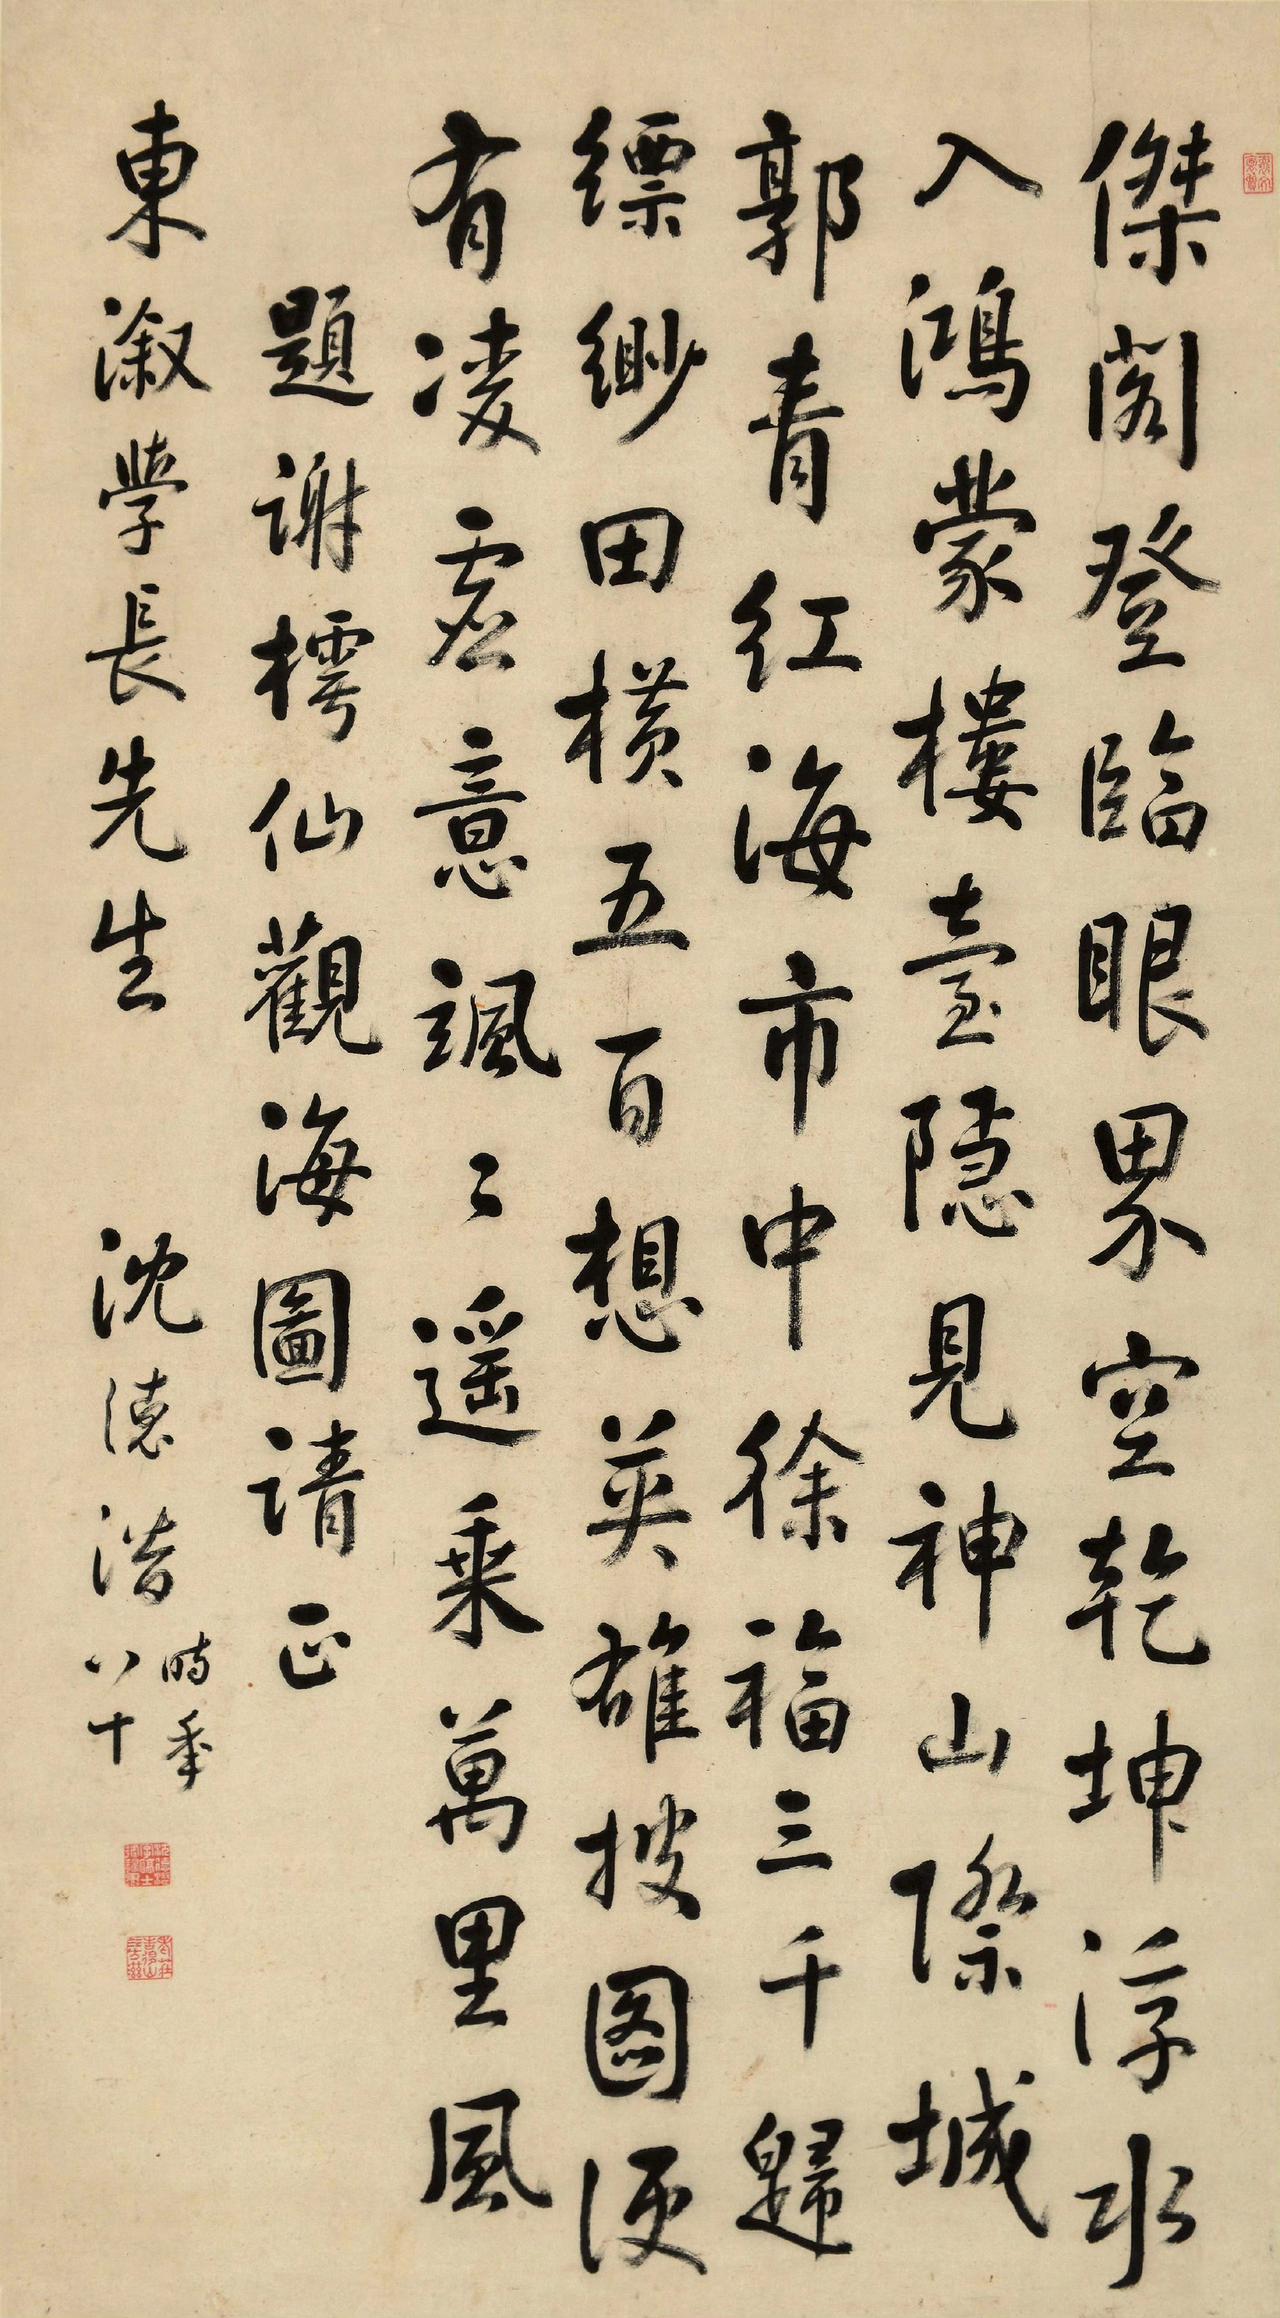 傑閣登臨眼界空乾坤浮水
入鴻蒙樓臺隱見神山際城
郭青紅海市中徐福三千歸
縹緲田橫五百想英雄披圖便
有凌虛意颯〻遥乘萬里風
題謝樗仙觀海圖請正
東溆學長先生
沈德潛時年八十